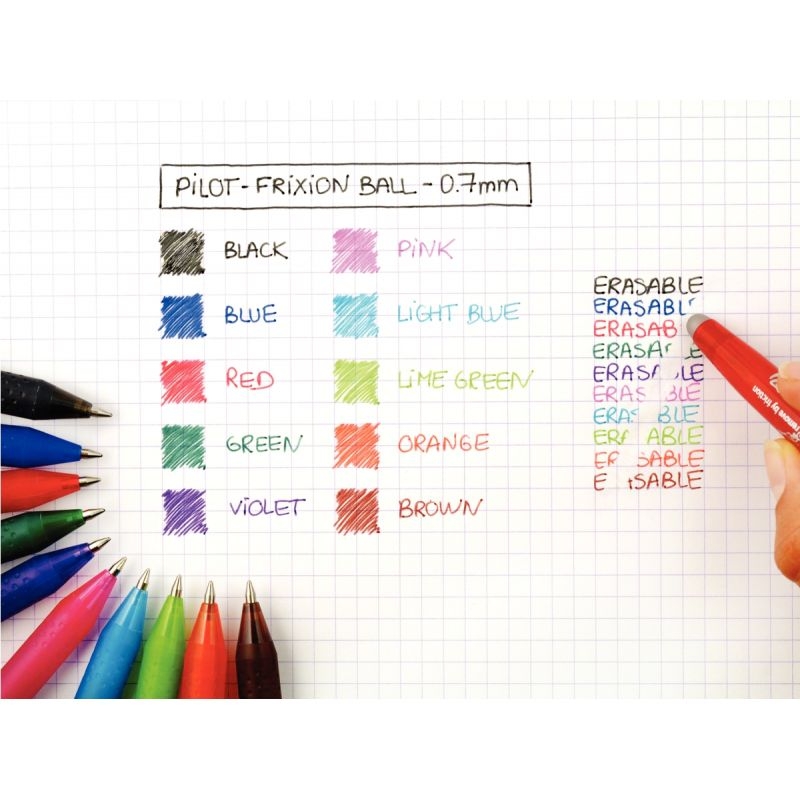 PILOT-FRIXION BALL - 0.7mm
BLACK
BLUE
RED
GREEN
VIOLET
PINK
LIGHT BLUE
LIME GREEN
ORANGE
BROWN
ERASABLE
ERASABL
ERASAB
ERASA LE
ERAS BLE
ERAS BLE
ERAS BLE
ER ABLE
ER SABLE
E SABLE
remove by friction